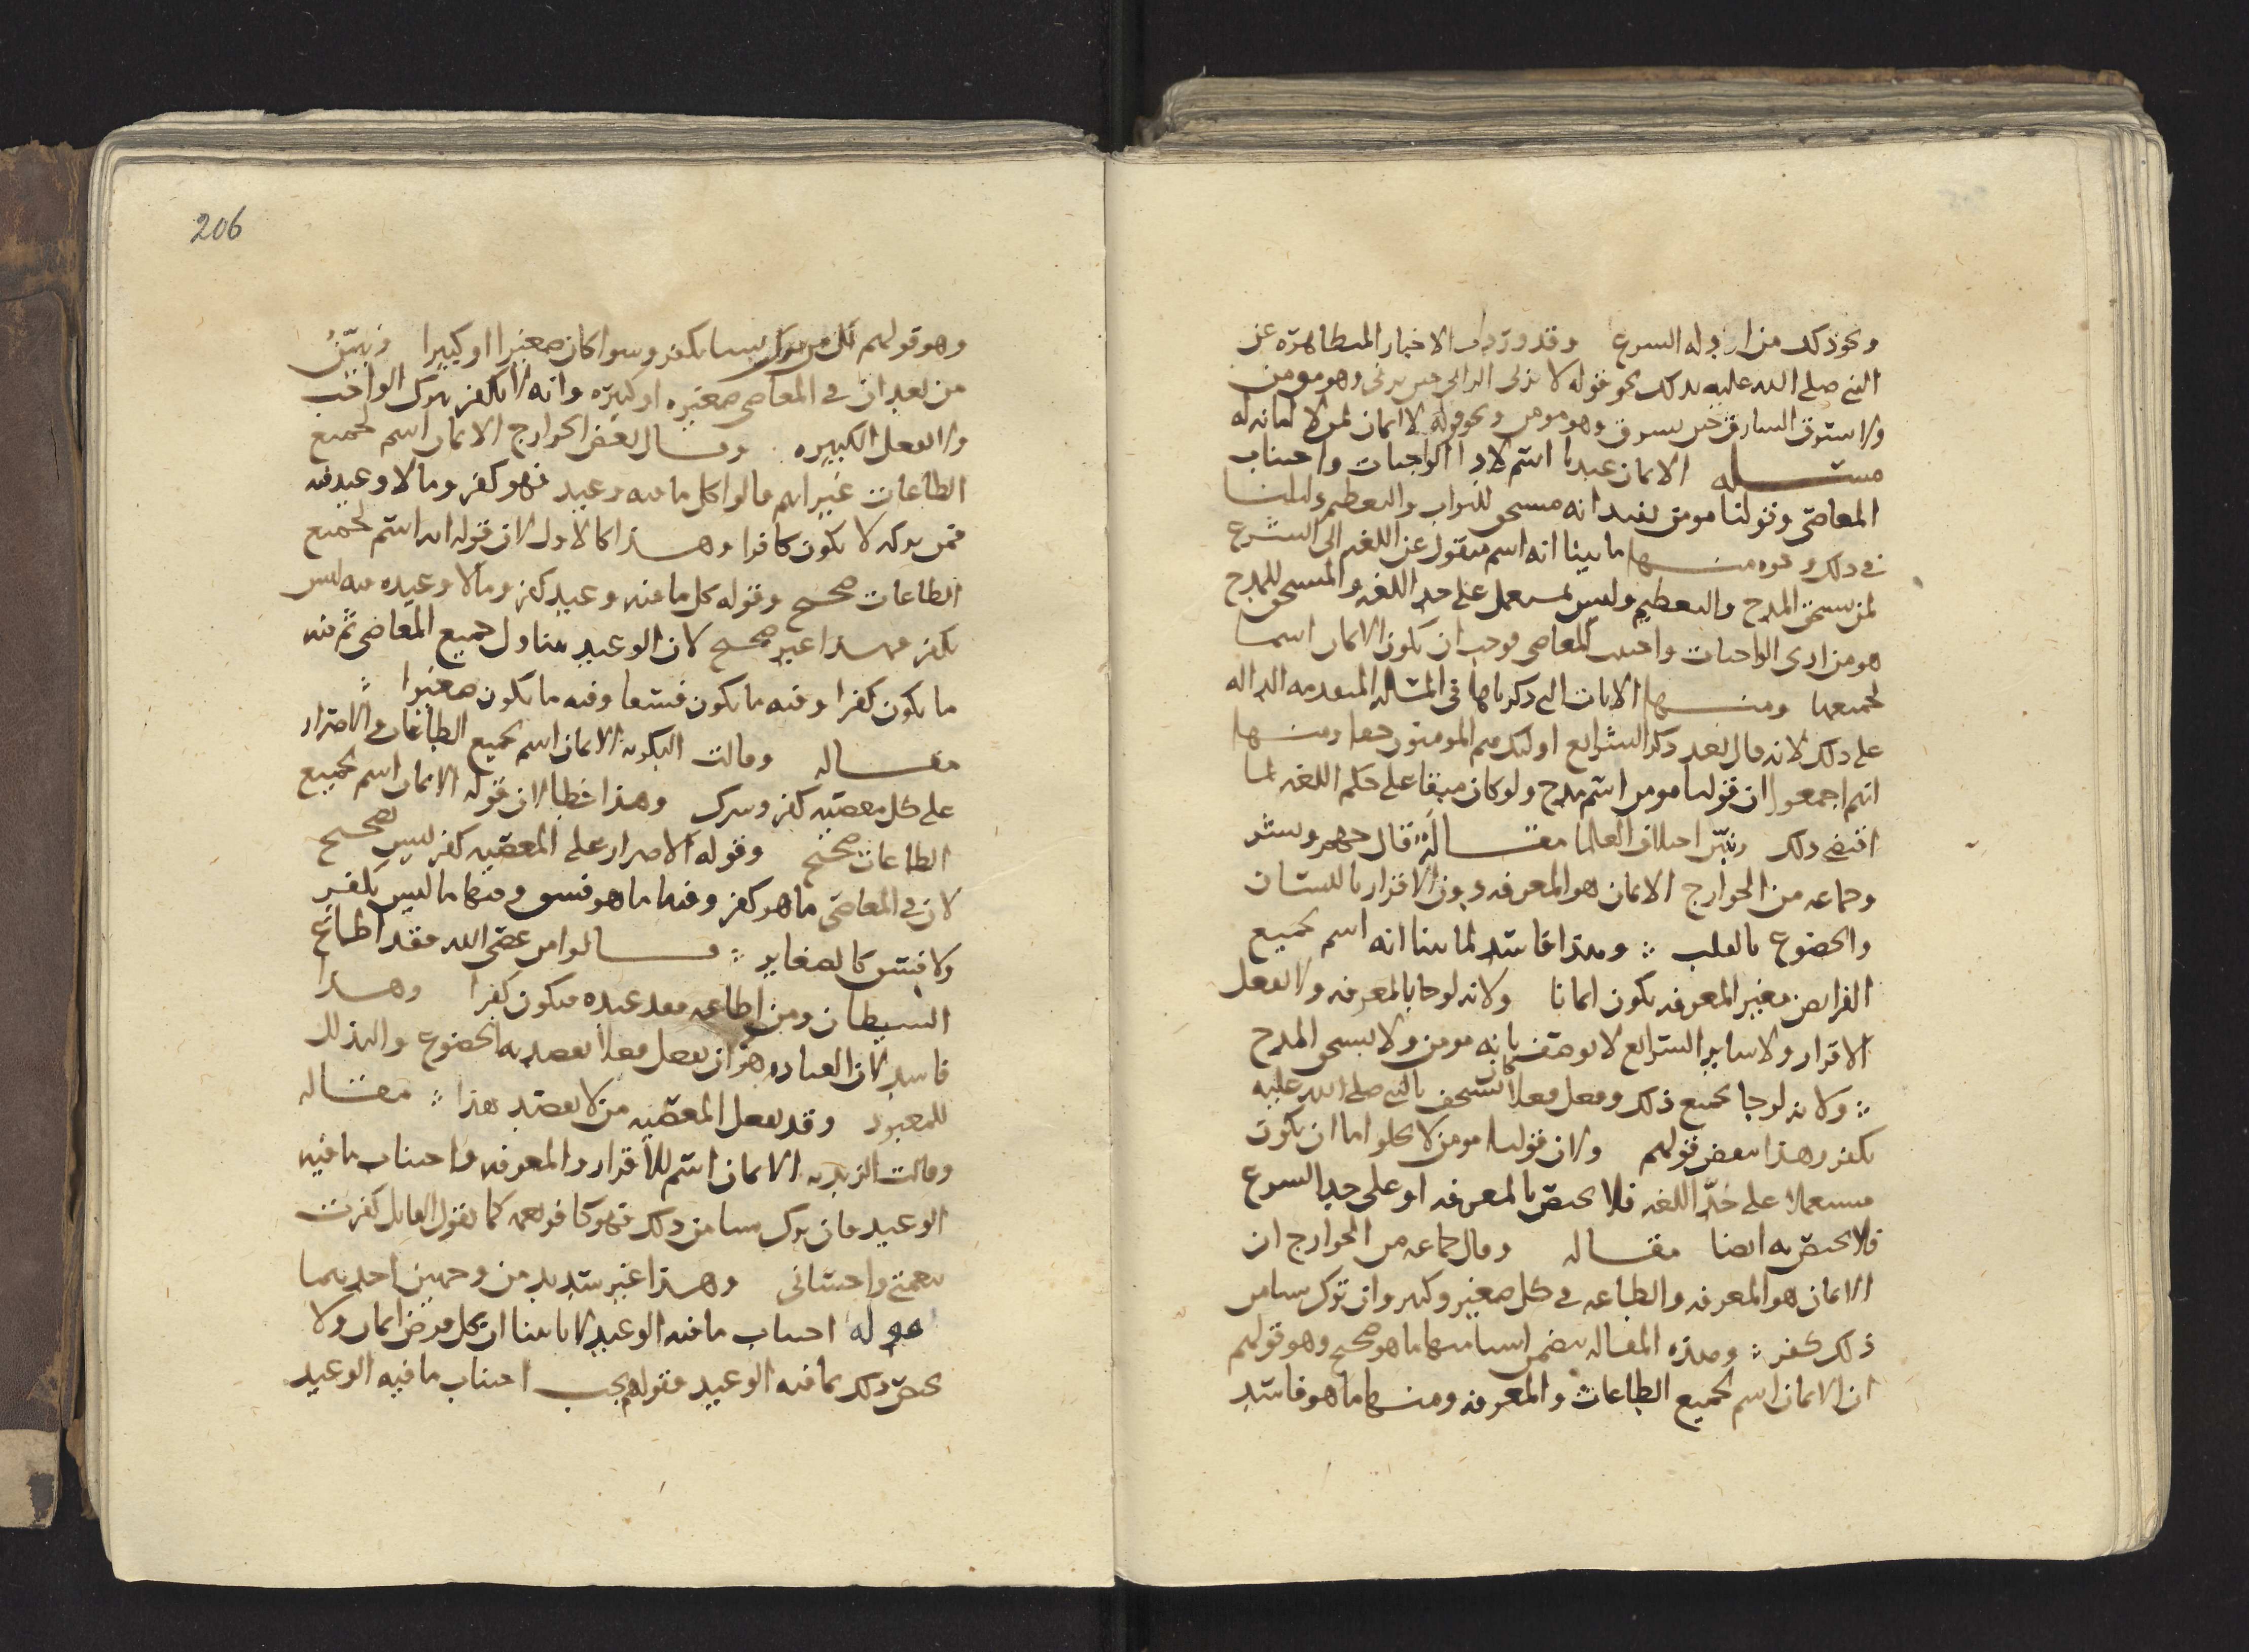 ونحو ذلك من ادله الشرع وقد وردت الاخبار المتظاهره عن
النبي صلى الله عليه بذلك نحو قوله لا يزني الزاني حين يزني وهو مومن
ولا يسرق السارق حين يسرق وهو مومن ونحو قوله لا ايمان لمن لا امانه له
مسئله الايمان عندنا اسم لادا الواجبات واجتناب
المعاصي وقولنا مومن يفيد انه مستحق للثواب والتعظيم ودليلنا
في ذلك وجوه منها ما بينا انه اسم منقول عن اللغه الى الشرع
لمن يستحق المدح والتعظيم وليس بمستعمل على حد اللغه والمستحق للمدح
هو من ادى الواجبات واجتنب المعاصي فوجب ان يكون الايمان اسما
لجميعها ومنها الايات التي ذكرناها في المساله المتقدمه الداله
على ذلك لانه قال بعد ذكر الشرايع اوليك هم المومنون حقا ومنها
انهم اجمعوا ان قولنا مومن اسم مدح ولو كان مبقا على حكم اللغه لما
اقتضى ذلك ونبين اختلاف العلما مقاله قال جهم وبشر
وجماعه من الخوارج الايمان هو المعرفه دون الاقرار باللسان
والخضوع بالقلب وهذا فاسد لما بينا انه اسم لجميع
الفرايض فغير المعرفه يكون ايمانا ولانه لو جا بالمعرفه ولا يفعل
الاقرار ولا ساير الشرايع لا يوصف بانه مومن ولا يستحق المدح
ولانه لو جا بجميع ذلك وفعل فعلا كان استخف بالنبي صلى الله عليه
يكفر وهذا ينقض قولهم ولان قولنا مومن لا يخلو اما ان يكون
مستعملا على حد اللغه فلا يختص بالمعرفه او على حد الشرع
فلا يختص به ايضا مقاله وقال جماعه من الخوارج ان
الايمان هو المعرفه والطاعه في كل صغير وكبير وان ترك شيا من
ذلك كفر وهذه المقاله تتضمن اشيا منها ما هو صحيح وهو قولهم
ان الايمان اسم لجميع الطاعات والمعرفه ومنها ما هو فاسد
206
وهو قولهم ان من ترك شيا يكفر وسوا كان صغيرا او كبيرا ونبين
من بعد ان في المعاصي صغيره او كبيره وانه لا يكفر بترك الواجب
ولا بفعل الكبيره وقال بعض الخوارج الايمان اسم لجميع
الطاعات غير انهم قالوا كل ما فيه وعيد فهو كفر وما لا وعيد فيه
فمن تركه لا يكون كافرا وهذا كالاول لان قوله انه اسم لجميع
الطاعات صحيح وقوله كل ما فيه وعيد كفر وما لا وعيد فيه ليس
بكفر فهذا غير صحيح لان الوعيد يتناول جميع المعاصي ثم فيه
ما يكون كفرا وفيه ما يكون فسقا وفيه ما يكون صغيرا
مقاله وقالت البكريه الايمان اسم لجميع الطاعات والاصرار
على كل معصيه كفر وشرك وهذا خطا لان قوله الايمان اسم لجميع
الطاعات صحيح وقوله الاصرار على المعصيه كفر ليس بصحيح
لان في المعاصي ما هو كفر وفيها ما هو فسق وفيها ما ليس بكفر
ولا فسق كالصغاير قالوا من عصى الله فقد اطاع
الشيطان ومن اطاعه فقد عبده فيكون كفرا وهذا
فاسد لان العباده هو ان يفعل فعلا يقصد به الخضوع والتذلل
للمعبود وقد يفعل المعصيه من لا يقصد هذا مقاله
وقالت الزيديه الايمان اسم للاقرار والمعرفه واجتناب ما فيه
الوعيد فان ترك شيا من ذلك فهو كافر نعمه كما يقول القايل كفرت
نعمتي واحساني وهذا غير سديد من وجهين احدهما
قوله اجتناب ما فيه الوعيد لانا بينا ان كل فرض ايمان ولا
يختص ذلك بما فيه الوعيد فقولهم يجب اجتناب ما فيه الوعيد